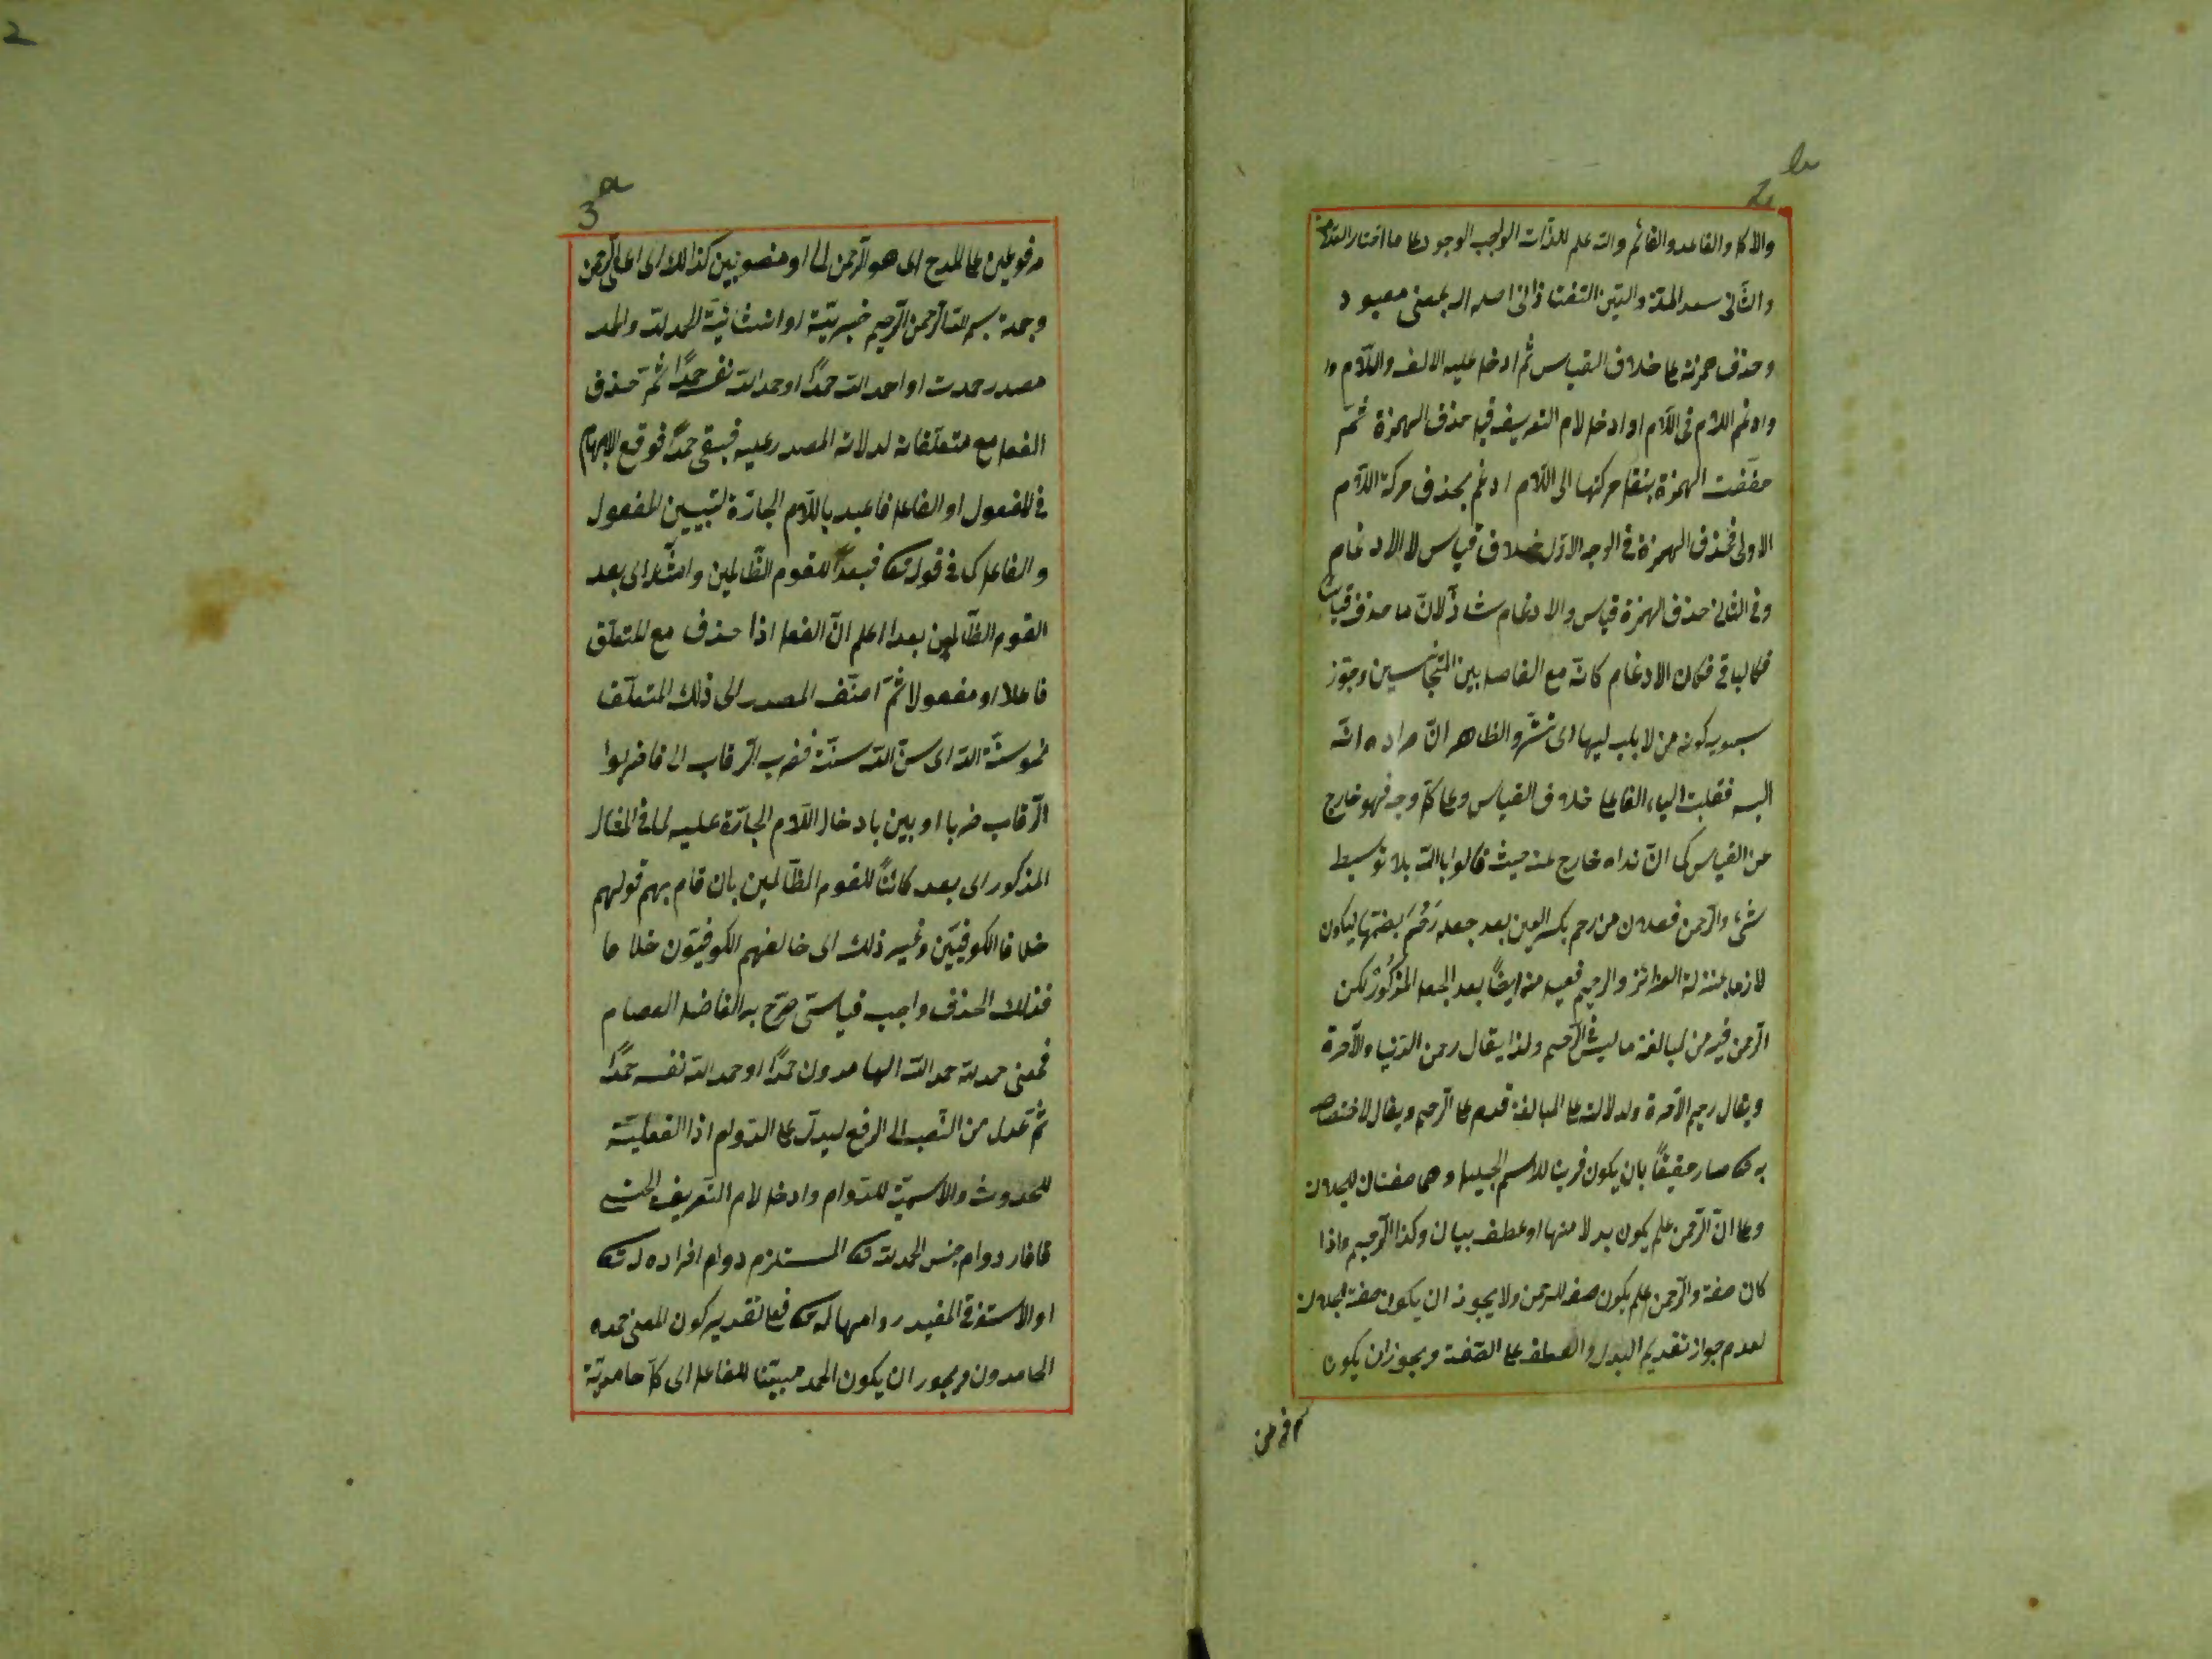 2
b
2
والاكل والقاعد والقائم والله علم للذات الواجب الوجود على ما اختار العلامة
والثانى سعد الملة والدين التفتازانى اصله اله بمعنى معبود
وحذف همزته على خلاف القياس ثم ادخل عليه الالف واللام وا
وادغم اللام فى اللام او ادخل لام التعريف قبل حذف الهمزة ثم
خففت الهمزة بنقل حركتها الى اللام ادغم بحذف حركة اللام
الاولى فحذف الهمزة فى الوجه الاول خلاف قياس لا الادغام
وفى الثانى حذف الهمزة قياس والادغام شاذ لان ما حذف قياسا
فكالباقى فكان الادغام كانه مع الفاصل بين المتجانسين وجوز
سيبويه كونه من لاه يليه ليها اى تستر والظاهر ان مراده انه
اليه فقلبت الياء الفا على خلاف القياس وعلى كل وجه فهو خارج
عن القياس كما ان نداه خارج عنه حيث قالوا يا الله بلا توسيط
شئ والرحمن فعلان من رحم بكسر العين بعد جعله رَحُمَ بضمها ليكون
لازما بمنزلة الغرائز والرحيم فعيل منه ايضًا بعد الجعل المذكور لكن
الرحمن فيه من المبالغة ما ليس فى الرحيم ولذا يقال رحمن الدنيا والآخرة
ويقال رحيم الآخرة ولدلالته على المبالغة قدم على الرحيم ويقال لاختصاصه
به تعالى صار حقيقًا بان يكون قرينا للاسم الجليل وهما صفتان للجلالة
وعلى ان الرحمن علم يكون بدلا منها او عطف بيان وكذا الرحيم واذا
كان صفة والرحمن علم يكون صفة للرحمن ولا يجوز ان يكون صفة لجلالة
لعدم جواز تقديم البدل والعطف على الصفة ويجوز ان يكون
3
a
مرفوعين على المدح اى هو الرحمن الخ او منصوبين كذالك اى اعنى الرحمن
وجملة بسم الله الرحمن الرحيم خبرية او انشائية الحمد لله والحمد
مصدر حمدت او احمد الله حمدًا او حمد الله نفسه حمدًا ثم حذف
الفعل مع متعلقاته لدلالة المصدر عليه فبقى حمدًا فوقع الابهام
فى المفعول او الفاعل فاعيد باللام الجارة لتبيين المفعول
والفاعل كما فى قوله تعالى فبعدًا للقوم الظالمين وامثله اى بعد
القوم الظالمين بعدا اعلم ان الفعل اذا حذف مع المتعلق
فاعلا او مفعولا ثم اضيف المصدر الى ذلك المتعلق
نحو سنة الله اى سن الله سنة فضرب الرقاب اى فاضربوا
الرقاب ضربا او بين بادخال اللام الجارة عليه كما فى المثال
المذكور اى بعد كائنًا للقوم الظالمين بان قام بهم قولهم
خلافا الكوفيين وغير ذلك اى خالفهم الكوفيون خلافا
فذلك الحذف واجب قياسى صرح به الفاضل العصام
فمعنى حمد لله حمد الله الحامدون حمدًا او حمد الله نفسه حمدًا
ثم عدل من النصب الى الرفع ليدل على الدوام اذ الفعلية
للحدوث والاسمية للدوام وادخل لام التعريف الجنسى
فافاد دوام جنس الحمد له تعالى المستلزم دوام افراده له تعالى
او الاستغراقى المفيد دوامها له تعالى فعلى تقدير كون المعنى حمده
الحامدون ويجوز ان يكون الحمد مبينا للفاعل اى كل حامدية